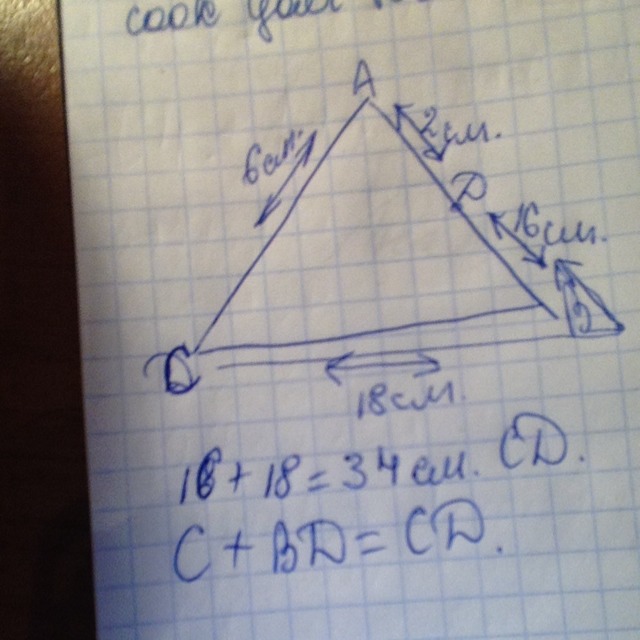 A
6см
2см.
D
6см.
18см.
16+18=34см. CD.
C+BD=CD.